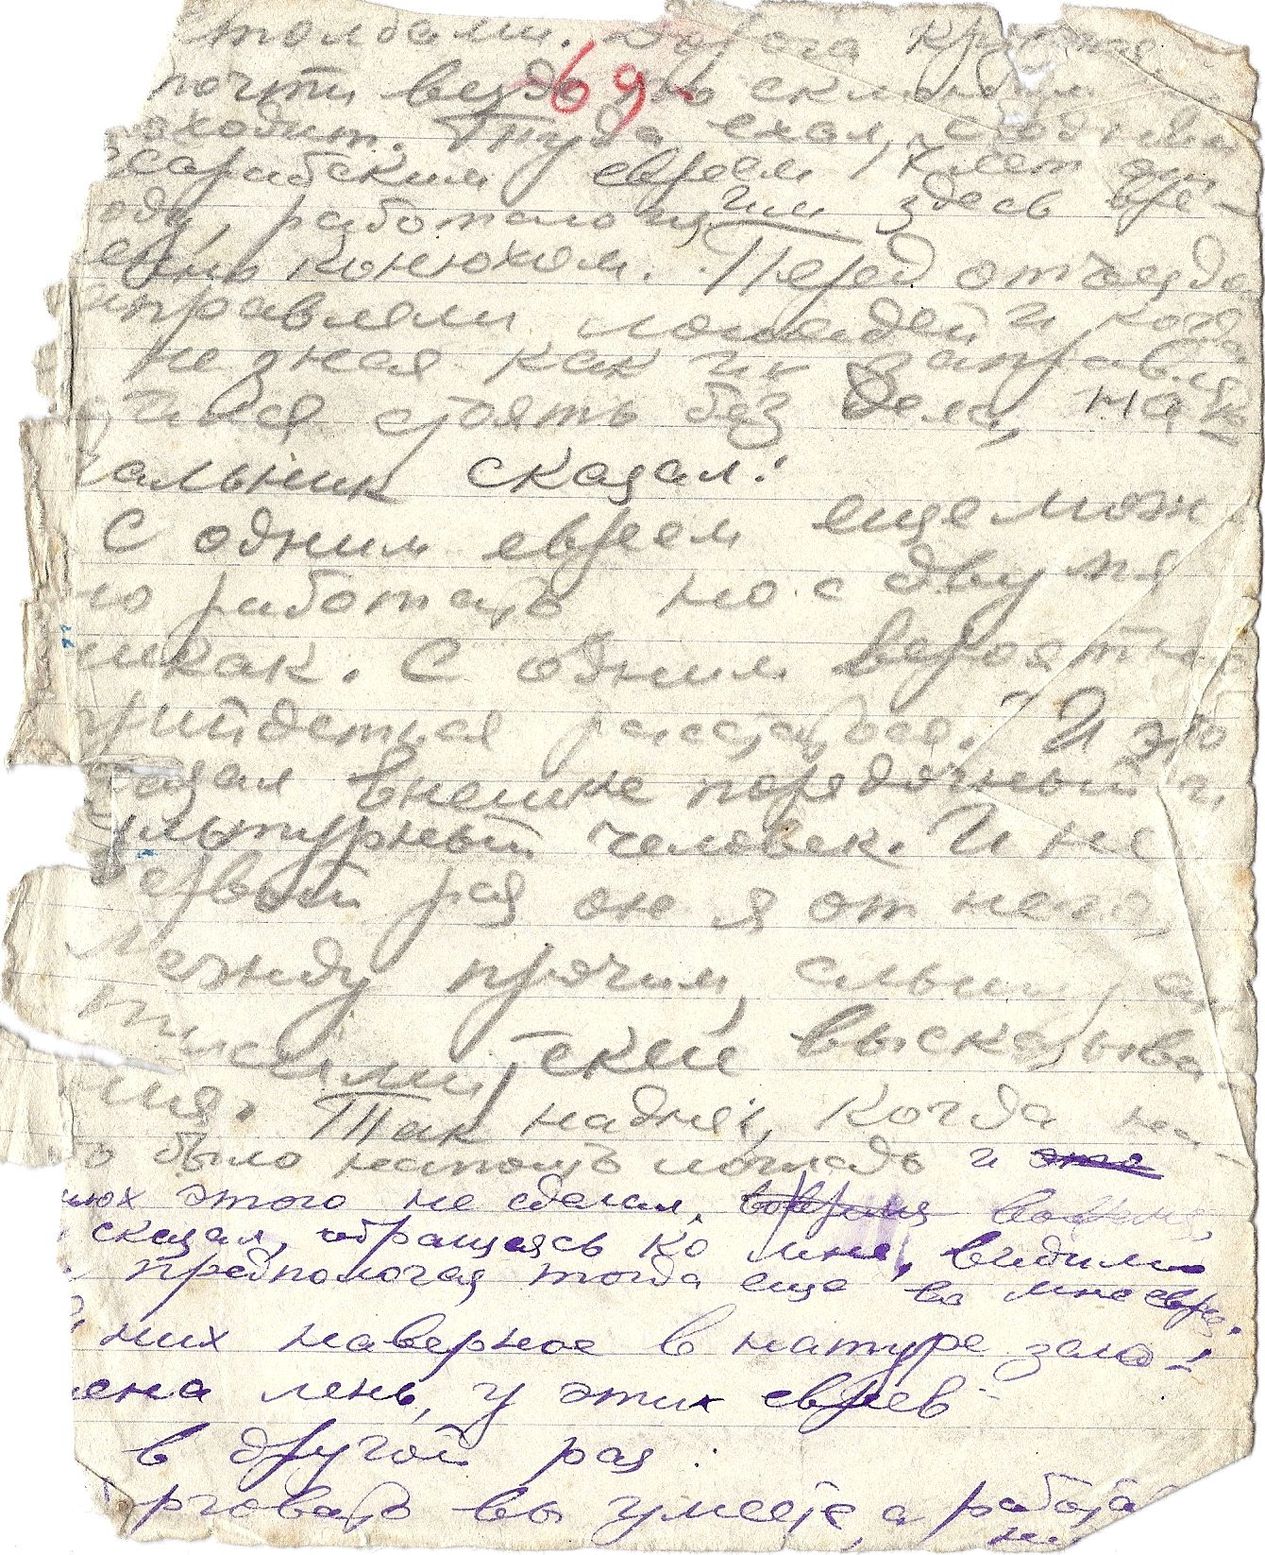 толбами. Дорога
69
почти везде по
оходит. Туда ехал с одним
есарабским евреем,
оду, работающим здесь вре-
енно конюхом. Перед отъездо
аправляли лошадей и когд
не зная как их заправл
стоять без дела, на-
чальник сказал:
С одним евреем еще мож
но работать но с двумя
никак. С одним вероятно
прийдется расстатся. И это
казал внешне порядочный и
культурный человек. И не
первый раз он я от него,
Между прочим, слышу а
тисимитские высказыва-
ния. Так надня, когда на-
до было напоить лошадь и это
нюх этого не сделал, вовремя
сказал, обращаясь ко мне, видимо
предпологая тогда еще во мне евр.
них наверное в натуре зало-
ена лень, у этих еврев
в другой раз:
орговать вы умеете, а работа
не